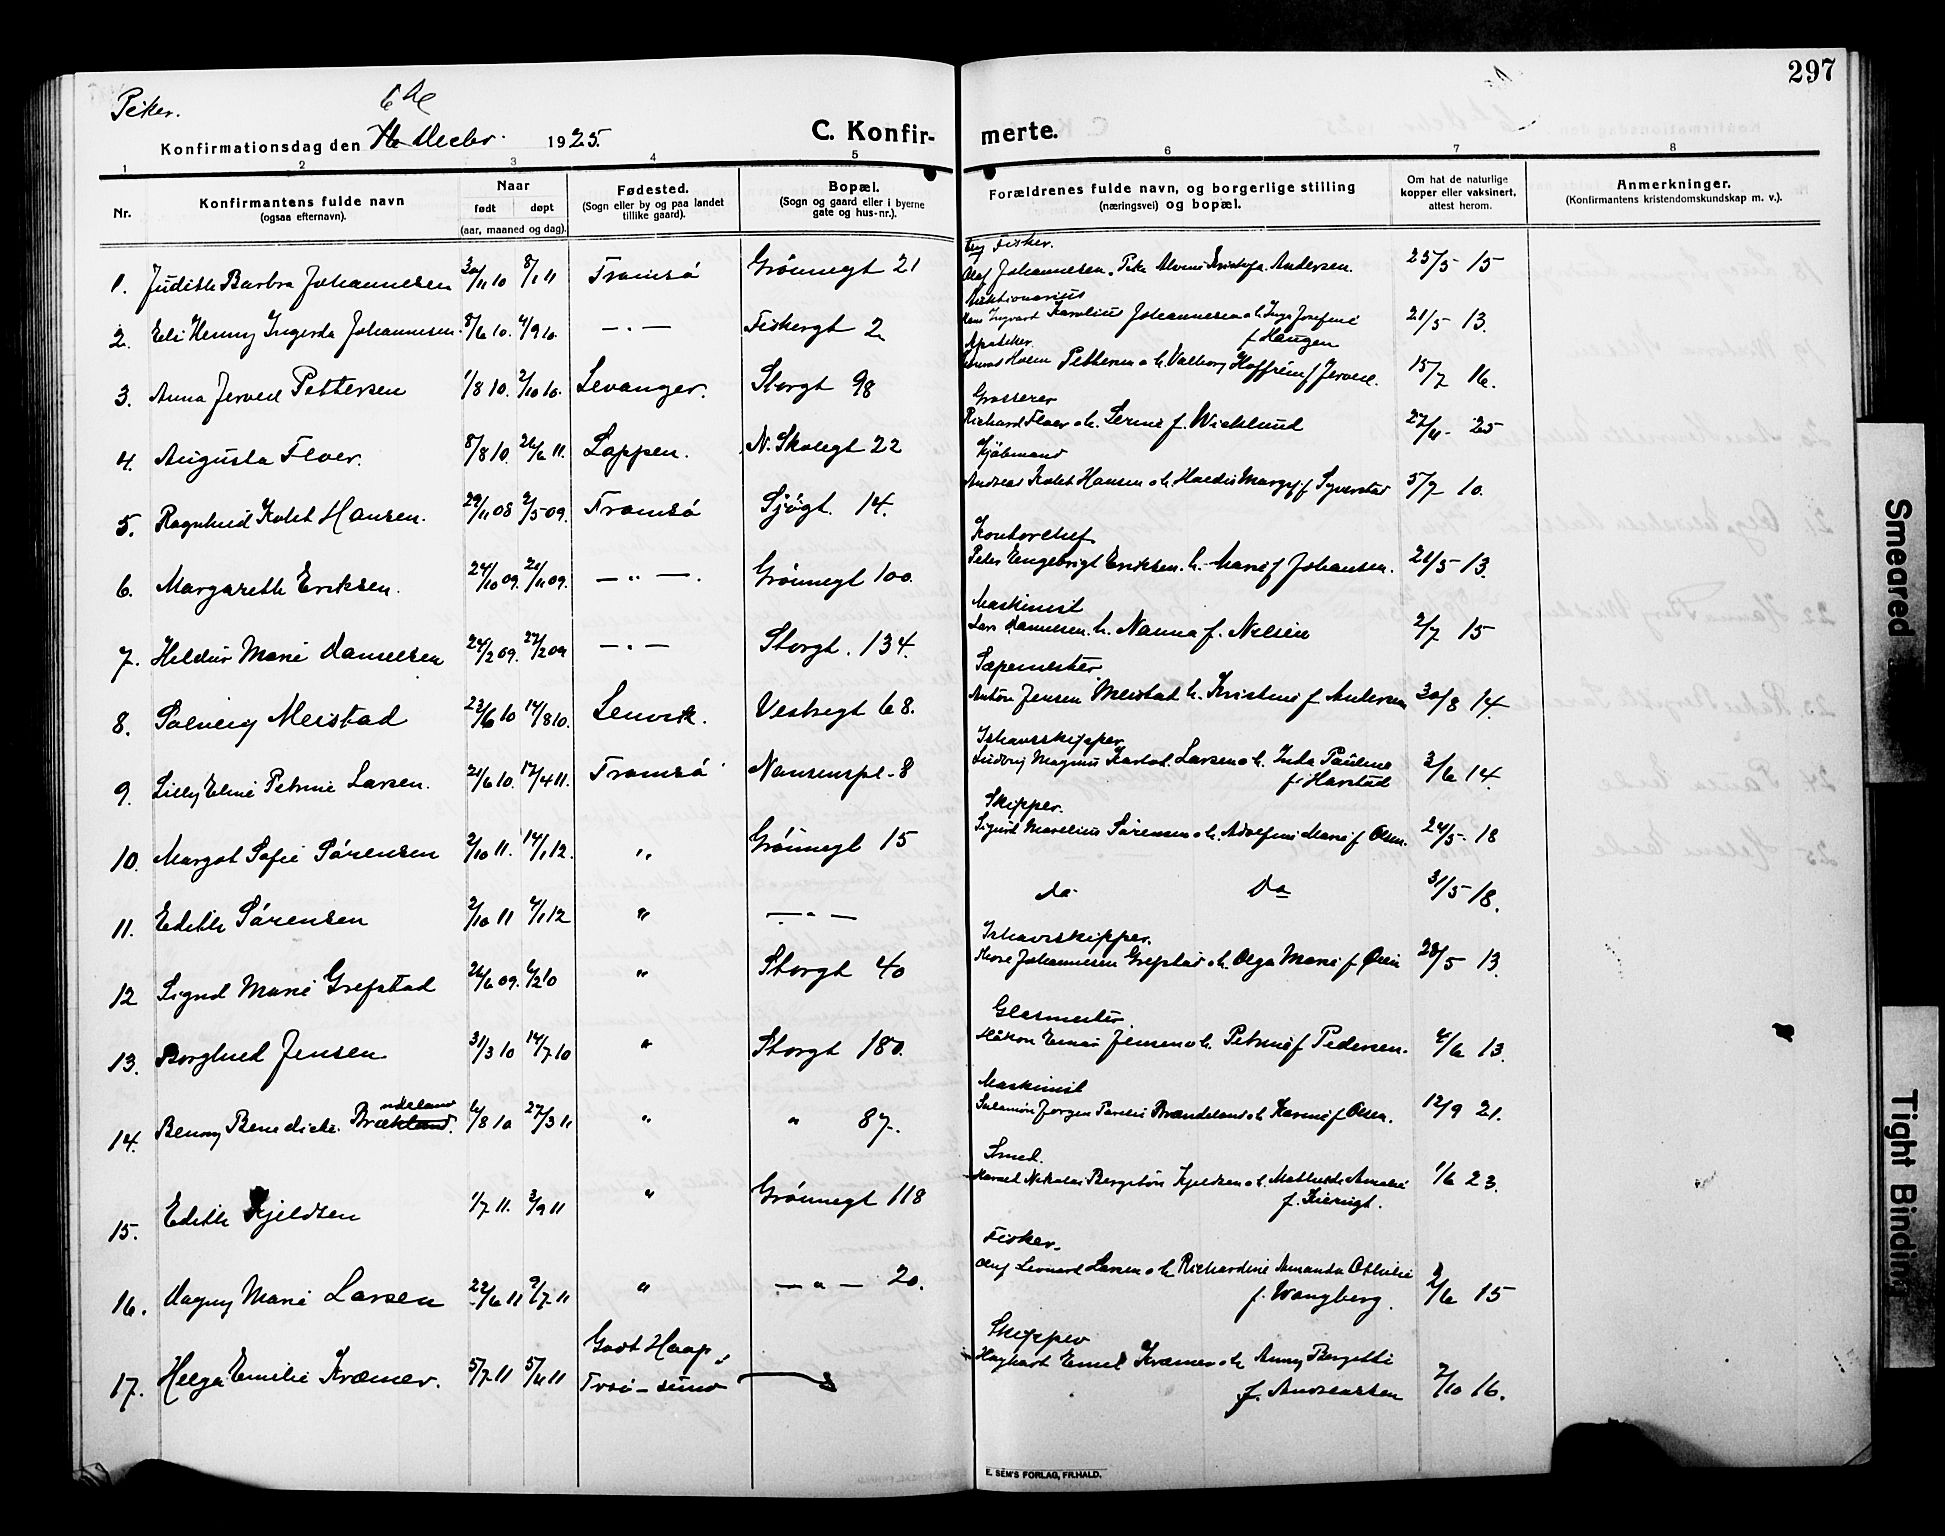 297
Piker.
6te
Konfirmationsdag den Decbr. 1925.
C. Konfirmerte.
1 2 3 4 5 6 7 8
Nr.
Konfirmantens fulde navn
(ogsaa efternavn).
Naar
født døpt
(aar, maaned og dag).
Fødested.
(Sogn eller by og paa landet
tillike gaard).
Bopæl.
(Sogn og gaard eller i byerne
gate og hus-nr.).
Forældrenes fulde navn, og borgerlige stilling
(næringsvei) og bopæl.
Om hat de naturlige
kopper eller vaksinert,
attest herom.
Anmerkninger.
(Konfirmantens kristendomskundskap m. v.).
Fisker.
1. Judith Barbra Johannesen 30/11 10 8/1 11 Tromsö Grönnegt 21 Olaf Johannesen, Andersen. 25/5 15
2. Eli Henny Ingerda Johannesen. 8/6 10. 4/9 10. — „ — Fiskergt 2 Hans Ingvart Karolius Johannesen o h. Inga Josefine 21/5 13.
f Haugen
Apoteker.
3. Anna Jervell Pettersen 1/8 10. 2/10 10. Levanger. Storgt 98 Holm Pettersen o h. Valborg Hoffrein f Jervell. 15/7 16.
Grosserer
4. Augusta Flöer. 8/8 10. 26/6 11. Loppen. N. Skolegt 22 Richard Flöer o h. Serine f. Wicklund 27/11 - 25
Kjöbmand
5. Ragnhild Kolst Hansen. 29/11 08 2/5 09. Tromsö Sjögt. 14. Andreas Kolst Hansen o h. Margr f. 5/7 10.
Kontorchef
6. Margareth Eriksen. 24/10 09. 21/11 09. — „ —. Grönnegt 100. Peter Engebrigt Eriksen. h. Marie f Johansen. 21/5 - 13.
Maskinist
7. Hildur Marie Danielsen 24/2 09. 27/2 09 — „ — Storgt. 134. Lars Danielsen. h. Nanna f. Nilsen 2/7 15
Sæpemester.
8. Solveig Meistad 23/6 10 14/8 10. Lenvik. Vestregt 68. Anton Jensen Meistad h. Kristine f Andersen 30/8 14.
Ishavsskipper
9. Lilly Eline Petrine Larsen. 21/6 10. 17/4 11. Tromsö Nansenspl - 8 Ludvig Magnus Larsen o h. Inda Pauline 3/6 14.
f. Harstad
Skipper.
10. Margot Sofie Sörensen 2/10 11. 14/1 12. „ Grönnegt 15 Sigurd Marelius Sörensen o h. Adolfine Marie f Olsen. 24/5 - 18
11. Edith Sörensen 2/10 11 4/1 12 " — „ — do Do 31/5 - 18.
Ishavsskipper.
12 Sigrid Marie Grefstad 26/6 09. " Storgt 40 Johannesen Grefstad o h. Olga Marie f 28/5 13.
Glasmester
13. Borghild Jensen 31/3 10 14/7 10 " Storgt 180. Håkon Einar Jensen o h. Petrine f Pedersen. 4/6 13.
Maskinist
ndeland
14. Benny Benedicte Brækland. 6/8 10 27/3 11 " " 87. Salamon Jörgen Brændeland o h. Karine f. Olsen. 12/9 21.
Smed.
15. Edith Kjeldsen 1/7 11. 3/9 11 " Grönnegt 118 Nikolai Bergstön Kjeldsen o h. Mathilde Amalie 1/6 23.
Fisker.
16. Dagny Marie Larsen 22/6 11 9/7 11 " — „ — 20. Oluf Leonard Larsen o h Richardine Amanda Othilie 2/6 15
f. Wangberg.
Skipper
17. Helga Emilie Kræmer. 5/7 11 5/11 11 Godt Haap,
Trsö - sund Hagbart Emil Kræmer o h Anny Bergitte
f. Andreassen 2/10 16.
E. SEM'S FORLAG, FR.HALD.
Smeared
Tight Binding